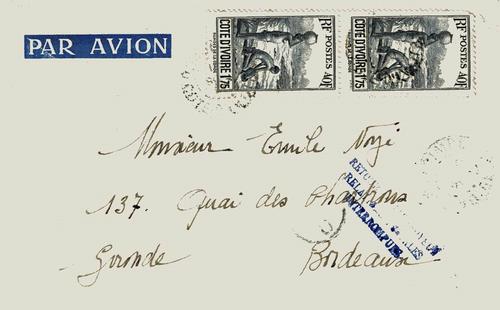 PAR AVION
RF POSTES 40F
CÔTE D'IVOIRE 1'75
RF POSTES 40F
CÔTE D'IVOIRE 1'75
Monsieur Emile
137. Quai des Chartrons
Gironde Bordeaux
INTERROMPUES